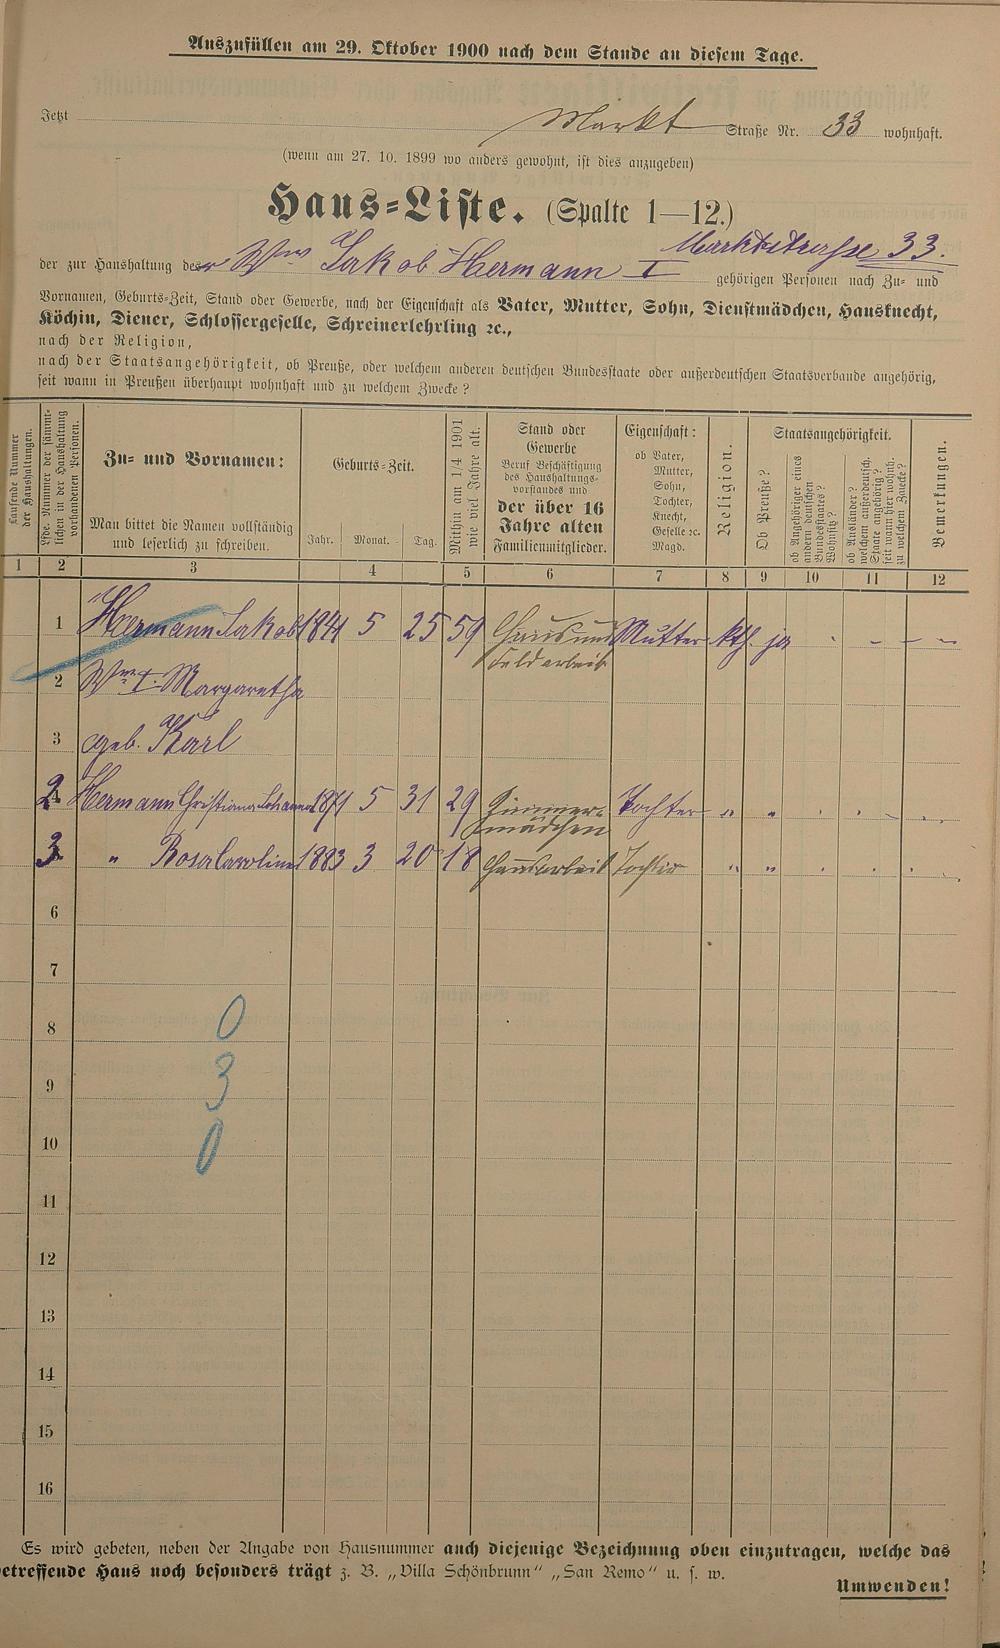 Auszufüllen am 29. Oktober 1900 nach dem Stande an diesem Tage.
Jetzt Markt Straße Nr. 33 wohnhaft.
(wenn am 27. 10. 1899 wo anders gewohnt, ist dies anzugeben)
Haus=Liste. (Spalte 1—12.)
Marktstrasse 33.
der zur Haushaltung der Wwe Jakob Hermann I gehörigen Personen nach Zu= und
Vornamen, Geburts=Zeit, Stand oder Gewerbe, nach der Eigenschaft als Vater, Mutter, Sohn, Dienstmädchen, Hausknecht,
Köchin, Diener, Schlossergeselle, Schreinerlehrling ꝛc.,
nach der Religion,
nach der Staatsangehörigkeit, ob Preuße, oder welchem anderen deutschen Bundesstaate oder außerdeutschen Staatsverbande angehörig,
seit wann in Preußen überhaupt wohnhaft und zu welchem Zwecke?
Laufende Nummer
der Haushaltungen.
Lfde. Nummer der sämmt=
lichen in der Haushaltung
vorhandenen Personen.
Zu= und Vornamen:
Man bittet die Namen vollständig
und leserlich zu schreiben.
Geburts=Zeit.
Jahr. Monat. Tag.
Mithin am 1/4 1901
wie viel Jahre alt.
Stand oder
Gewerbe
Beruf Beschäftigung
des Haushaltungs=
vorstandes und
der über 16
Jahre alten
Familienmitglieder.
Eigenschaft:
ob Vater,
Mutter,
Sohn,
Tochter,
Knecht,
Geselle ꝛc.
Magd.
Religion.
Staatsangehörigkeit.
Ob Preuße?
ob Angehöriger eines
andern deutschen
Bundesstaates?
Wohnsitz?
ob Ausländer?
welchem außerdeutsch.
Staate angehörig?
seit wann hier wohnh.
zu welchem Zwecke?
Bemerkungen.
1 2 3 4 5 6 7 8 9 10 11 12
1 Hermann Jakob 1841 5 25 59 Haus und Mutter kth. ja - - - -
Feldarbeit
2 Wwe I. Margaretha
3 geb. Karl
2 Hermann Christiana Johanna 1871 5 31 29 Zimmer= Tochter " "
mädchen
3 " Rosa Caroline 1883 3 20 18 Hausarbeit Tochter " "
6
7
8 0
9 3
10 0
11
12
13
14
15
16
Es wird gebeten, neben der Angabe von Hausnummer auch diejenige Bezeichnung oben einzutragen, welche das
etreffende Haus noch besonders trägt z. B. „Villa Schönbrunn" „San Remo" u. s. w.
Umwenden!